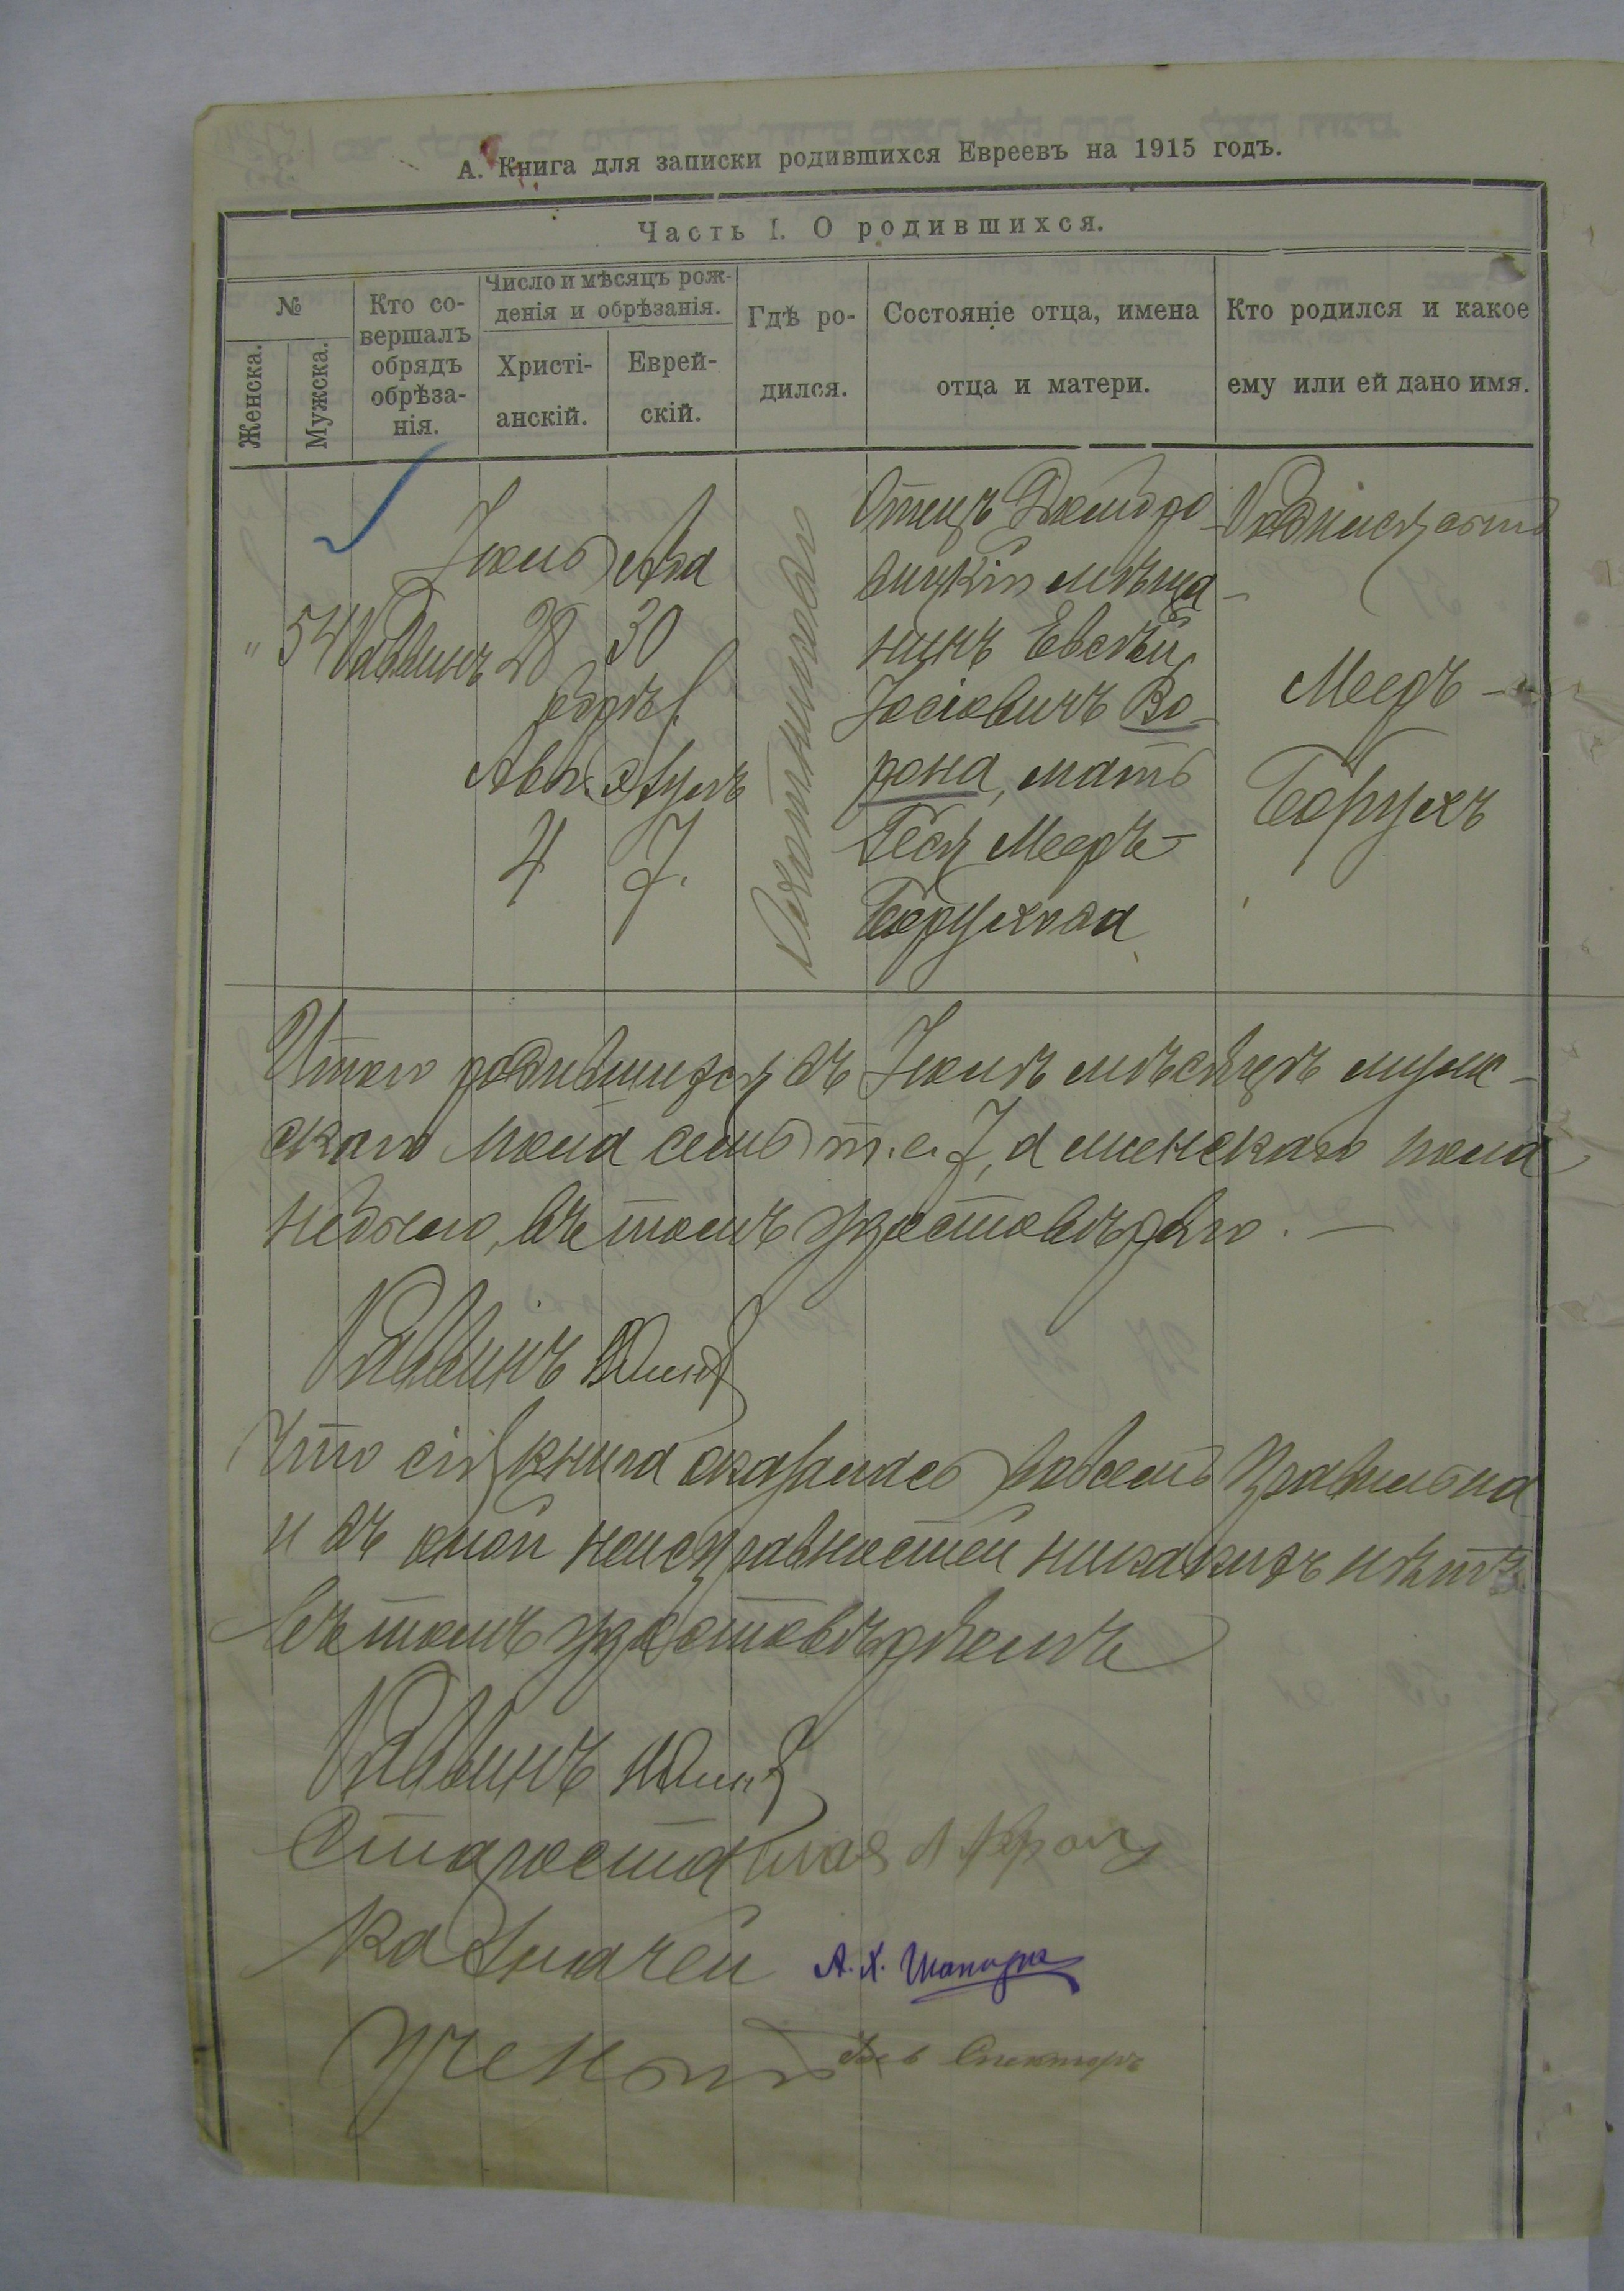 А. Книга для записки родившихся Евреевъ на 1915 годъ.
Часть I. О родившихся.
№
Женска.
Мужска.
Кто со-
вершалъ
обрядъ
обрѣза-
нія.
Число и мѣсяцъ рож-
денія и обрѣзанія.
Христі-
анскій.
Еврей-
скій.
Гдѣ ро-
дился.
Состояніе отца, имена
отца и матери.
Кто родился и какое
ему или ей дано имя.
" 54 Раввинъ
Іюль
28
обрѣз.
Авг.
4
Ава
30
7.
Отецъ
мѣща-
нинъ Евсѣй
Іосіовичъ Во-
рона, мать
Геся Мееръ-
Борухова
Мееръ-
Борухъ
Итого родившихся въ Іюлѣ мѣсяцѣ муж-
скаго пола семь т.е. 7, а женскаго пола
небыло, въ томъ удостовѣряю. —
Раввинъ
Что сія книга оказалась вовсемъ правильна
и въ оной неисправностей никакихъ нѣтъ
въ томъ удостовѣряемъ
Раввинъ
Староста
Казначей А. Х. Шапира
Ученый Спекторъ